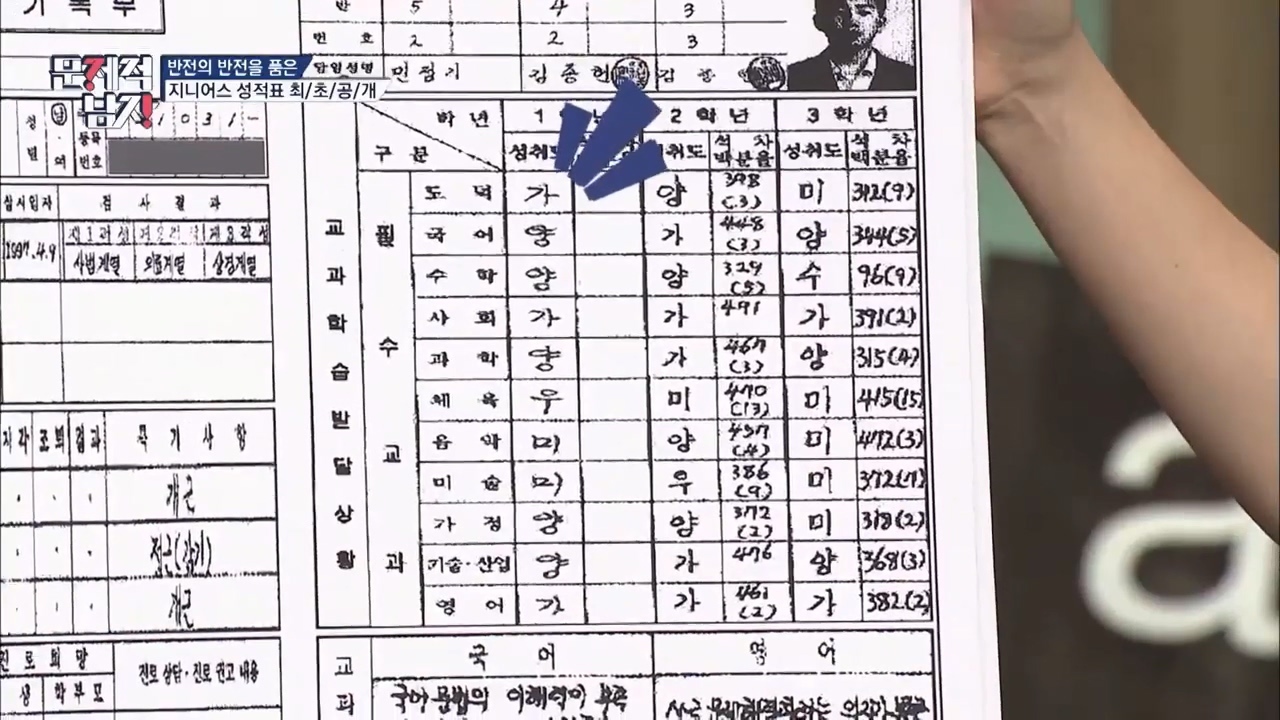 기록부
반 5 4 3
번호 2 2 3
문제적 남자
반전의 반전을 품은
지니어스 성적표 최/초/공/개
담임성명 민점기 김종헌
학년 1 2학년 3학년
구분 성취도 성취도 석차 백분율 성취도 석차 백분율
교과학습발달상황
필수교과
도덕 가 양 398(3) 미 392(9)
국어 양 가 448(3) 양 344(5)
수학 양 양 329(5) 수 96(9)
사회 가 가 491 가 391(2)
과학 양 가 467(3) 양 315(4)
체육 우 미 470(13) 미 415(15)
음악 미 양 457(4) 미 472(3)
미술 미 우 386(9) 미 372(7)
가정 양 양 372(2) 미 318(2)
기술·산업 양 가 476 양 368(3)
영어 가 가 461(2) 가 382(2)
성별
등록번호 1031-
실시일자 검사결과
1997.4.9 사법계열 의료계열 상경계열
지각 조퇴 결과 특기사항
개근
정근(감기)
개근
진로희망 진로 상담·진로 권고 내용
학생 학부모
교과 국어 영어
국어 문법의 이해력이 부족
a